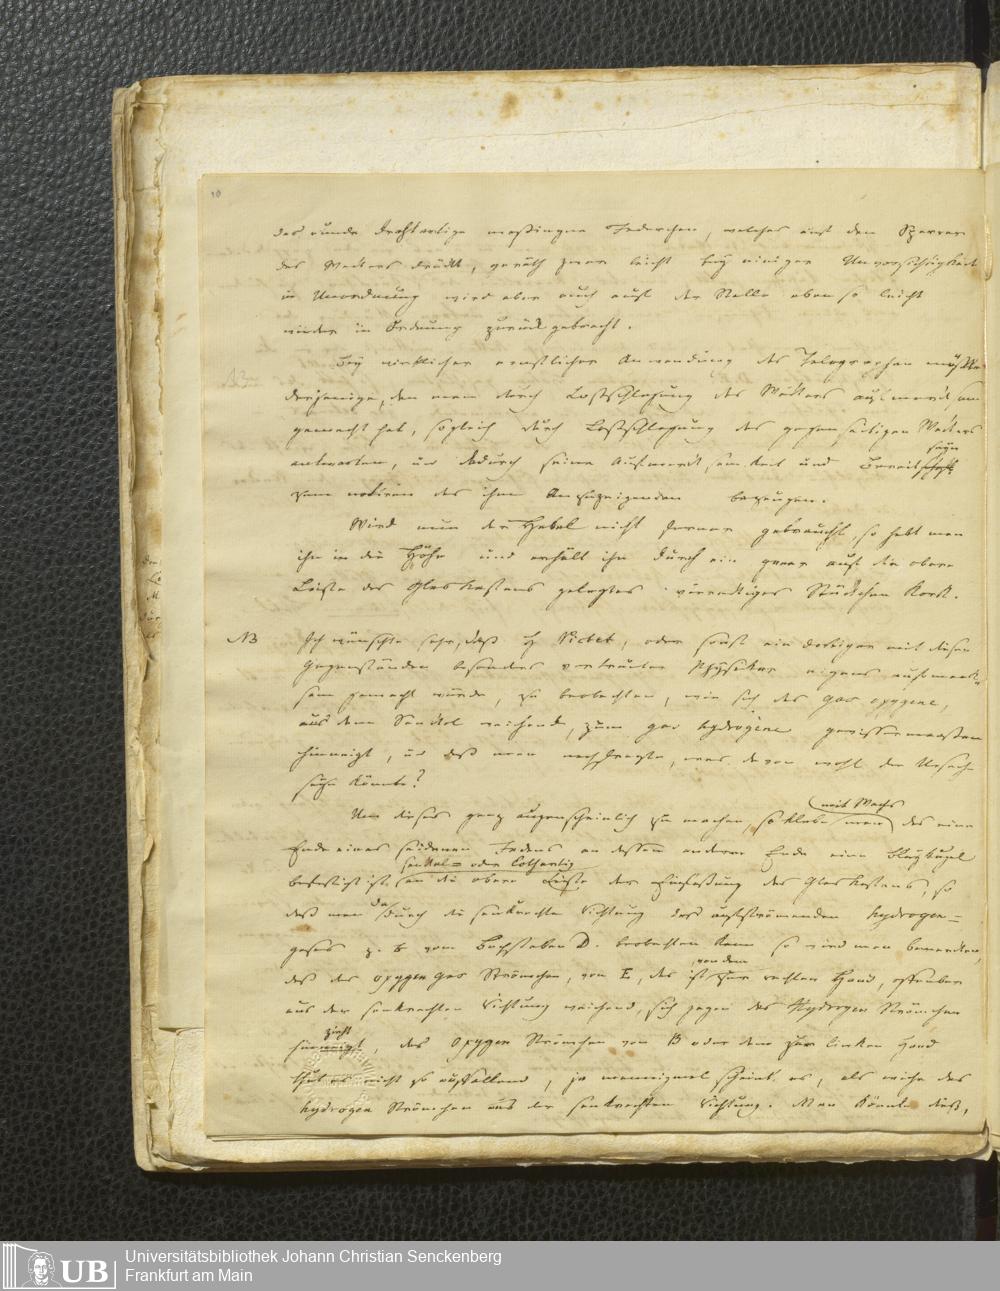 10
das runde drahtartige messingne Federchen, welches auf den Sperrer
des Weckers drückt, geräth zwar leicht bey einiger Unvorsichtigkeit
in Unordnung wird aber auch auf der Stelle eben so leicht
wieder in Ordnung zurück gebracht.
Bey wirklicher ernstlicher Anwendung des Telegraphen müßte
derjenige, den man durch Losschlagung des Weckers aufmerksam
gemacht hat, sogleich durch Losschlagung des gegenseitigen Weckers
seyn
antworten, und dadurch seine Aufmerksamkeit und Bereitschaft
zum notiren des ihm Anzuzeigenden bezeugen.
Wird nun der Hebel nicht ferner gebraucht, so hebt man
ihn in die Höhe und erhält ihn durch ein quer auf die obere
Leiste des Glaskastens gelegtes viereckiges Stückchen Kork.
NB Ich wünschte sehr, daß H Pictet, oder sonst ein dortiger mit diesen
Gegenständen besonders vertrauter Physiker eigens aufmerk-
sam gemacht würde, zu beobachten, wie sich das gas oxygene,
aus dem Senkel weichend, zum gas hydrogène gewissermaßen
hinneigt, und daß man nachfragte, was davon wohl die Ursache
seyn könnte?
mit Wachs
Um dieses ganz augenscheinlich zu machen, so klebe man das eine
Ende eines seidenen Fadens an dessen anderm Ende eine Bleykugel
senkel= oder lothartig
befestigt ist, an die obere Leiste der Einfaßung des Glaskastens, so
da
daß man durch die senkrechte Richtung des aufströmenden hydrogen=
gases z. B vom Buchstaben D. beobachten kann so wird man bemerken,
von dem
daß das oxygen gas Strömchen, von E, das ist zur rechten Hand, offenbar
aus der senkrechten Richtung weichend, sich gegen das Hydrogen Strömchen
zieht
hinneigt, das Oxygen Strömchen von B oder dem zur linken Hand
thut es nicht so auffallend, ja manchmal scheint es, als wiche das
hydrogen Strömchen aus der senkrechten Richtung. Man könnte dieß,
Universitätsbibliothek Johann Christian Senckenberg
Frankfurt am Main
UB